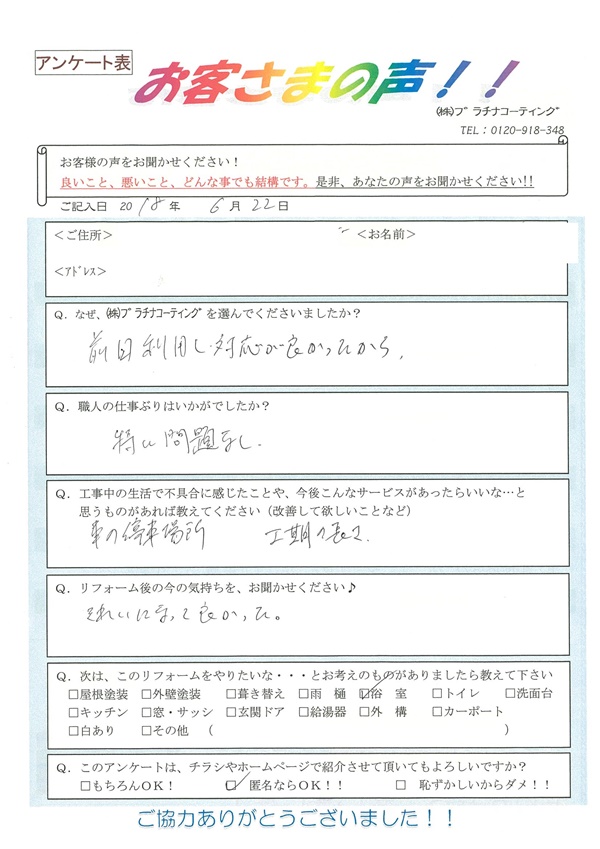 アンケート表
お客さまの声！！
㈱プラチナコーティング
TEL：0120-918-348
お客様の声をお聞かせください！
良いこと、悪いこと、どんな事でも結構です。是非、あなたの声をお聞かせください!!
ご記入日 2018年 6月22日
＜ご住所＞ ＜お名前＞
＜アドレス＞
Q．なぜ、㈱プラチナコーティングを選んでくださいましたか？
前回利用し対応が良かったから、
Q．職人の仕事ぶりはいかがでしたか？
特に問題なし、
Q．工事中の生活で不具合に感じたことや、今後こんなサービスがあったらいいな…と
思うものがあれば教えてください（改善して欲しいことなど）
車の停車場所 工期の長さ
Q．リフォーム後の今の気持ちを、お聞かせください♪
きれいになって良かった。
Q．次は、このリフォームをやりたいな・・・とお考えのものがありましたら教えて下さい
□屋根塗装 □外壁塗装 □葺き替え □雨　樋 □浴　室 □トイレ □洗面台
□キッチン □窓・サッシ □玄関ドア □給湯器 □外　構 □カーポート
□白あり □その他 （ ）
Q．このアンケートは、チラシやホームページで紹介させて頂いてもよろしいですか？
□もちろんOK！ □ 匿名ならOK！！ □ 恥ずかしいからダメ！！
ご協力ありがとうございました！！